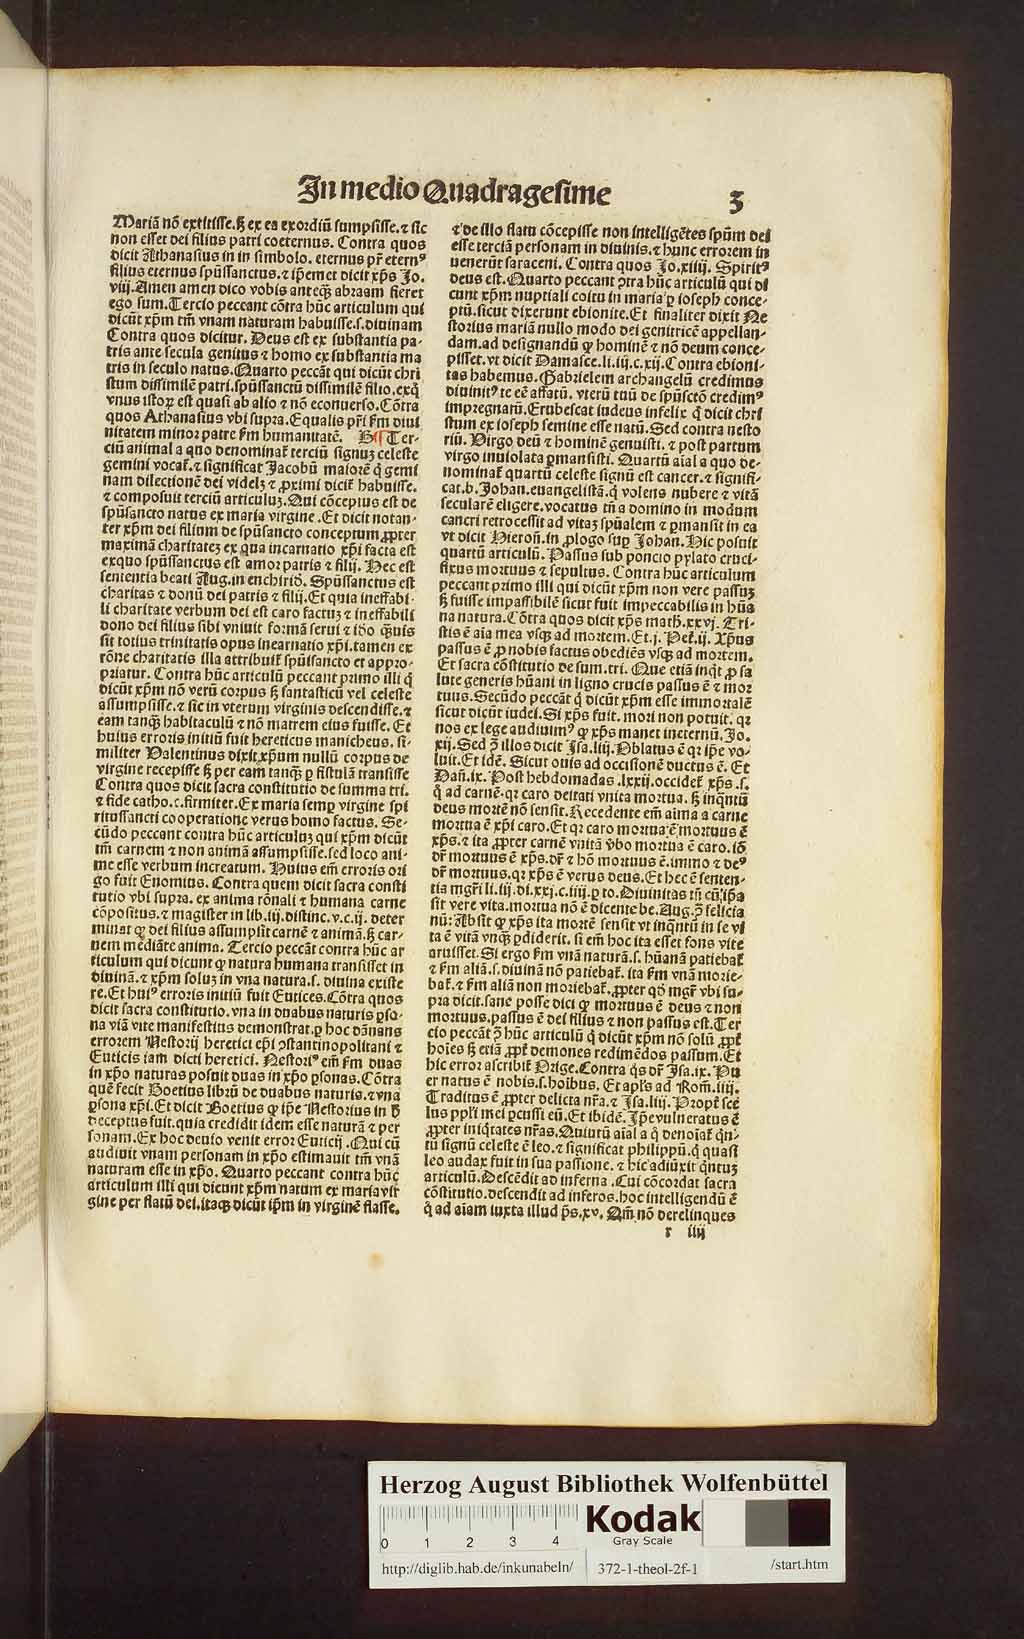 In medio Quadragesime
3
Mariã nõ extitisse. sꝫ ex ea exordiũ sumpsisse. ⁊ sic
non esset dei filius patri coeternus. Contra quos
dicit Athanasius in in simbolo. eternus pr̃ eternꝰ
filius eternus spũssanctus. ⁊ ip̃emet dicit xp̃s Jo.
viij. Amen amen dico vobis anteqꝫ abraam fieret
ego sum. Tercio peccant cõtra hũc articulum qui
dicũt xp̃m tm̃ vnam naturam habuisse. s. diuinam
Contra quos dicitur. Deus est ex substantia pa-
tris ante secula genitus ⁊ homo ex substantia ma
tris in seculo natus. Quarto peccãt qui dicũt chri
stum dissimilẽ patri. spũssanctũ dissimilẽ filio. exq̃
vnus istoꝝ est quasi ab alio ⁊ nõ econuerso. Cõtra
quos Athanasius vbi supra. Equalis pr̃i f̃m diui
nitatem minor patre f̃m humanitatẽ. Ter-
ciũ animal a quo denominaꝉ terciũ signuꝫ celeste
gemini vocaꝉ. ⁊ significat Jacobũ maiorẽ q̃ gemi
nam dilectionẽ dei videlꝫ ⁊ ꝓximi diciꝉ habuisse.
⁊ composuit terciũ articuluꝫ. Qui cõceptus est de
spũsancto natus ex maria virgine. Et dicit notan-
ter xp̃m dei filium de spũsancto conceptum ꝓpter
maximã charitateꝫ ex qua incarnatio xp̃i facta est
exquo spũssanctus est amor patris ⁊ filij. Hec est
sententia beati Aug. in enchirid̃. Spũssanctus est
charitas ⁊ donũ dei patris ⁊ filij. Et quia ineffabi-
li charitate verbum dei est caro factuꝫ ⁊ ineffabili
dono dei filius sibi vniuit formã serui ⁊ id̃o q̃uis
sit totius trinitatis opus incarnatio xp̃i. tamen ex
rõne charitatis illa attribuiꝉ spũisancto et appro-
priatur. Contra hũc articulũ peccant primo illi q̃
dicũt xp̃m nõ verũ corpus sꝫ fantasticũ vel celeste
assumpsisse. ⁊ sic in vterum virginis descendisse. ⁊
eam tanqꝫ habitaculũ ⁊ nõ matrem eius fuisse. Et
huius erroris initiũ fuit hereticus manicheus. si-
militer Valentinus dixit xp̃um nullũ corpus de
virgine recepisse sꝫ per eam tanqꝫ ꝑ fistulã transisse
Contra quos dicit sacra constitutio de summa tri.
⁊ fide catho. c. firmiter. Ex maria semꝑ virgine spi
ritussancti cooperatione verus homo factus. Se-
cũdo peccant contra hũc articuluꝫ qui xp̃m dicũt
tm̃ carnem ⁊ non animã assumpsisse. sed loco ani-
me esse verbum increatum. Huius em̃ erroris ori
go fuit Enomius. Contra quem dicit sacra consti
tutio vbi supra. ex anima rõnali ⁊ humana carne
cõpositus. ⁊ magister in lib. iij. distinc. v. c. ij. deter
minat ꝙ dei filius assumpsit carnẽ ⁊ animã. sꝫ car-
nem mediãte anima. Tercio peccãt contra hũc ar
ticulum qui dicunt ꝙ natura humana transisset in
diuinã. ⁊ xp̃m soluꝫ in vna natura. s. diuina existe
re. Et huiꝰ erroris initiũ fuit Eutices. Cõtra quos
dicit sacra constitutio. vna in duabus naturis ꝑso-
na viã vite manifestius demonstrat. ꝑ hoc dãnans
errorem Nestorij heretici ep̃i ꝯstantinopolitani ⁊
Euticis iam dicti heretici. Nestoriꝰ em̃ f̃m duas
in xp̃o naturas posuit duas in xp̃o ꝑsonas. Cõtra
quẽ fecit Boetius librũ de duabus naturis. ⁊ vna
ꝑsona xp̃i. Et dicit Boetius ꝙ ip̃e Nestorius in ħ
deceptus fuit. quia credidit idem esse naturã ⁊ per
sonam. Ex hoc deuio venit error Euticij. Qui cũ
audiuit vnam personam in xp̃o estimauit tm̃ vnã
naturam esse in xp̃o. Quarto peccant contra hũc
articulum illi qui dicunt xp̃m natum ex maria vir
gine per flatũ dei. itaqꝫ dicũt ip̃m in virginẽ flasse.
⁊ de illo flatu cõcepisse non intelligẽtes sp̃um dei
esse terciã personam in diuinis. ⁊ hunc errorem in
uenerũt saraceni. Contra quos Jo. xiiij. Spiritꝰ
deus est. Quarto peccant ꝯtra hũc articulũ qui di
cunt xp̃m nuptiali coitu in maria ꝑ ioseph conce-
ptũ. sicut dixerunt ebionite. Et finaliter dixit Ne
storius mariã nullo modo dei genitricẽ appellan-
dam. ad designandũ ꝙ hominẽ ⁊ nõ deum conce-
pisset. vt dicit Damasce. li. iij. c. xij. Contra ebioni-
tas habemus. Gabrielem archangelũ credimus
diuinitꝰ te eẽ affatũ. vterũ tuũ de sp̃usctõ credimꝰ
impregnatũ. Erubescat iudeus infelix q̃ dicit chri
stum ex ioseph semine esse natũ. Sed contra nesto
riũ. Virgo deũ ⁊ hominẽ genuisti. ⁊ post partum
virgo inuiolata ꝑmansisti. Quartũ aĩal a quo de-
nominaꝉ quartũ celeste signũ est cancer. ⁊ signifi-
cat. b. Johan. euangelistã. q̃ volens nubere ⁊ vitã
secularẽ eligere. vocatus tñ a domino in modum
cancri retrocessit ad vitaꝫ sp̃ualem ⁊ ꝑmansit in ea
vt dicit Hieroñ. in ꝓlogo suꝑ Johan. Hic posuit
quartũ articulũ. Passus sub poncio pylato cruci-
fixus mortuus ⁊ sepultus. Contra hũc articulum
peccant primo illi qui dicũt xp̃m non vere passuꝫ
sꝫ fuisse impassibilẽ sicut fuit impeccabilis in hũa
na natura. Cõtra quos dicit xp̃s math. xxvj. Tri-
stis ẽ aĩa mea vsqꝫ ad mortem. Et. j. Peꝉ. ij. Xp̃us
passus ẽ ꝓ nobis factus obediẽs vsqꝫ ad mortem.
Et sacra cõstitutio de sum. tri. Que etiã inq̃t ꝓ sa
lute generis hũani in ligno crucis passus ẽ ⁊ mor
tuus. Secũdo peccãt q̃ dicũt xp̃m esse immortalẽ
sicut dicũt iudei. Si xp̃s fuit. mori non potuit. qꝛ
nos ex lege audiuimꝰ ꝙ xp̃s manet ineternũ. Jo.
xij. Sed ꝯ̃ illos dicit Isa. liij. Oblatus ẽ qꝛ ip̃e vo-
luit. Et idẽ. Sicut ouis ad occisionẽ ductus ẽ. Et
Dañ. ix. Post hebdomadas. lxxij. occideꝉ xp̃s. s.
q̃ ad carnẽ. qꝛ caro deitati vnita mortua. sꝫ inq̃ntũ
deus mortẽ nõ sensit. Recedente em̃ aĩma a carne
mortua ẽ xp̃i caro. Et qꝛ caro mortua ẽ mortuus ẽ
xp̃s. ⁊ ita ꝓpter carnẽ vnitã v̾bo mortua ẽ caro. iõ
dr̃ mortuus ẽ xp̃s. dr̃ ⁊ hõ mortuus ẽ. immo ⁊ deꝰ
dr̃ mortuus. qꝛ xp̃s ẽ verus deus. Et hec ẽ senten-
tia mgr̃i li. iij. di. xxj. c. iiij. ꝑ to. Diuinitas tñ cũ ip̃a
sit vere vita. mortua nõ ẽ dicente be. Aug. ꝯ̃ felicia
nũ: Absit ꝙ xp̃s ita mortẽ sensit vt inq̃ntũ in se vi
ta ẽ vitã vnqꝫ ꝑdiderit. si em̃ hoc ita esset fons vite
aruisset. Si ergo f̃m vnã naturã. s. hũanã patiebaꝉ
⁊ f̃m aliã. s. diuinã nõ patiebaꝉ. ita f̃m vnã morie-
baꝉ. ⁊ f̃m aliã non moriebaꝉ. ꝓpter qd̃ mgr̃ vbi su-
pra dicit. sane posse dici ꝙ mortuus ẽ deus ⁊ non
mortuus. passus ẽ dei filius ⁊ non passus est. Ter
cio peccãt ꝯ̃ hũc articulũ q̃ dicũt xp̃m nõ solũ ꝓpꝉ
hoĩes sꝫ etiã ꝓpꝉ demones redimẽdos passum. Et
hic error ascribiꝉ Orige. Contra q̃s dr̃ Isa. ix. Pu
er natus ẽ nobis. s. hoĩbus. Et apl̃s ad Rom̃. iiij.
Traditus ẽ ꝓpter delicta nr̃a. ⁊ Isa. liij. Propꝉ sce
lus ppl̃i mei ꝑcussi eũ. Et ibidẽ. Ip̃e vulneratus ẽ
ꝓpter iniq̃tates nr̃as. Quintũ aĩal a q̃ denoĩaꝉ q̃n-
tũ signũ celeste ẽ leo. ⁊ significat philippũ. q̃ quasi
leo audax fuit in sua passione. ⁊ hic adiũxit q̃ntuꝫ
articulũ. Descẽdit ad inferna. Cui cõcordat sacra
cõstitutio. descendit ad inferos. hoc intelligendũ ẽ
q̃ ad aĩam iuxta illud p̃s. xv. Qm̃ nõ derelinques
r iiij
Herzog August Bibliothek Wolfenbüttel
0 1 2 3 4
Kodak
Gray Scale
http://diglib.hab.de/inkunabeln/
372-1-theol-2f-1
/start.htm